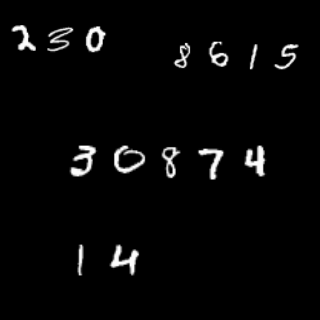 230
8615
30874
14